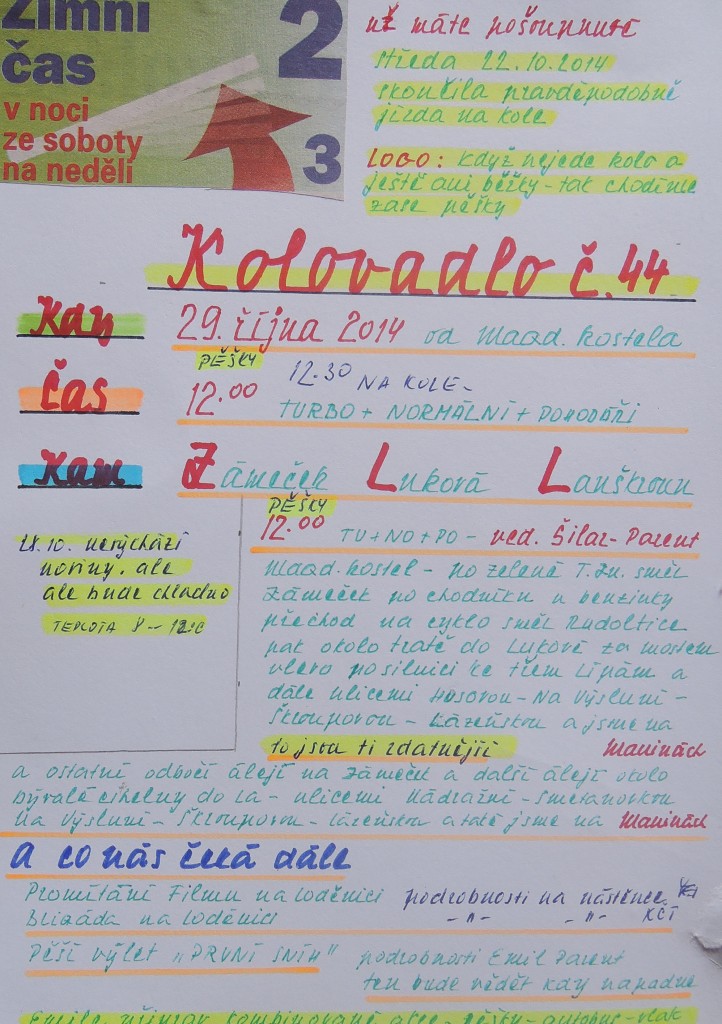 Zimní
čas
v noci
ze soboty
na neděli
2
3
už máte pošoupnuté
středa 22.10.2014
skončila pravděpodobně
jízda na kole
LOGO: když nejede kolo a
ještě ani běžky - tak chodíme
zase pěšky
Kolovadlo č. 44
Kdy 29. října 2014 od Magd. kostela
PĚŠKY
čas 12.00 12.30 NA KOLE -
TURBO + NORMÁLNÍ + POHODÁŘI
Kam Zámeček Luková Lanškroun
PĚŠKY
12.00 TU+NO+PO - ved. Šilar - Parent
Magd. kostel - po zelené T.Zn. směr
Zámeček po chodníku u benzinky
přechod na cyklo směr Rudoltice
pak okolo tratě do Lukové za mostem
vlevo po silnici ke třem Lípám a
dále ulicemi Hosovou - Na Výsluní -
Škroupovou - Lázeňskou a jsme na
to jsou ti zdatnější Marinách
28.10. nevychází
noviny, ale
ale bude chladno
TEPLOTA 8 - 12°C
a ostatní odbočí álejí na Zámeček a další álejí okolo
bývalé cihelny do La - ulicemi Nádražní - Smetanovkou
Na Výsluní - Škroupovou - Lázeňskou a také jsme na Marinách
A co nás čeká dále
Promítání Filmu na loděnici podrobnosti na nástěnce
na loděnici -"- -"- KČT
Pěší výlet „PRVNÍ SNÍH" podrobnosti Emil Parent
ten bude vědět kdy napadne
Emile, připrav kombinované akce - pěšky - autobus - vlak